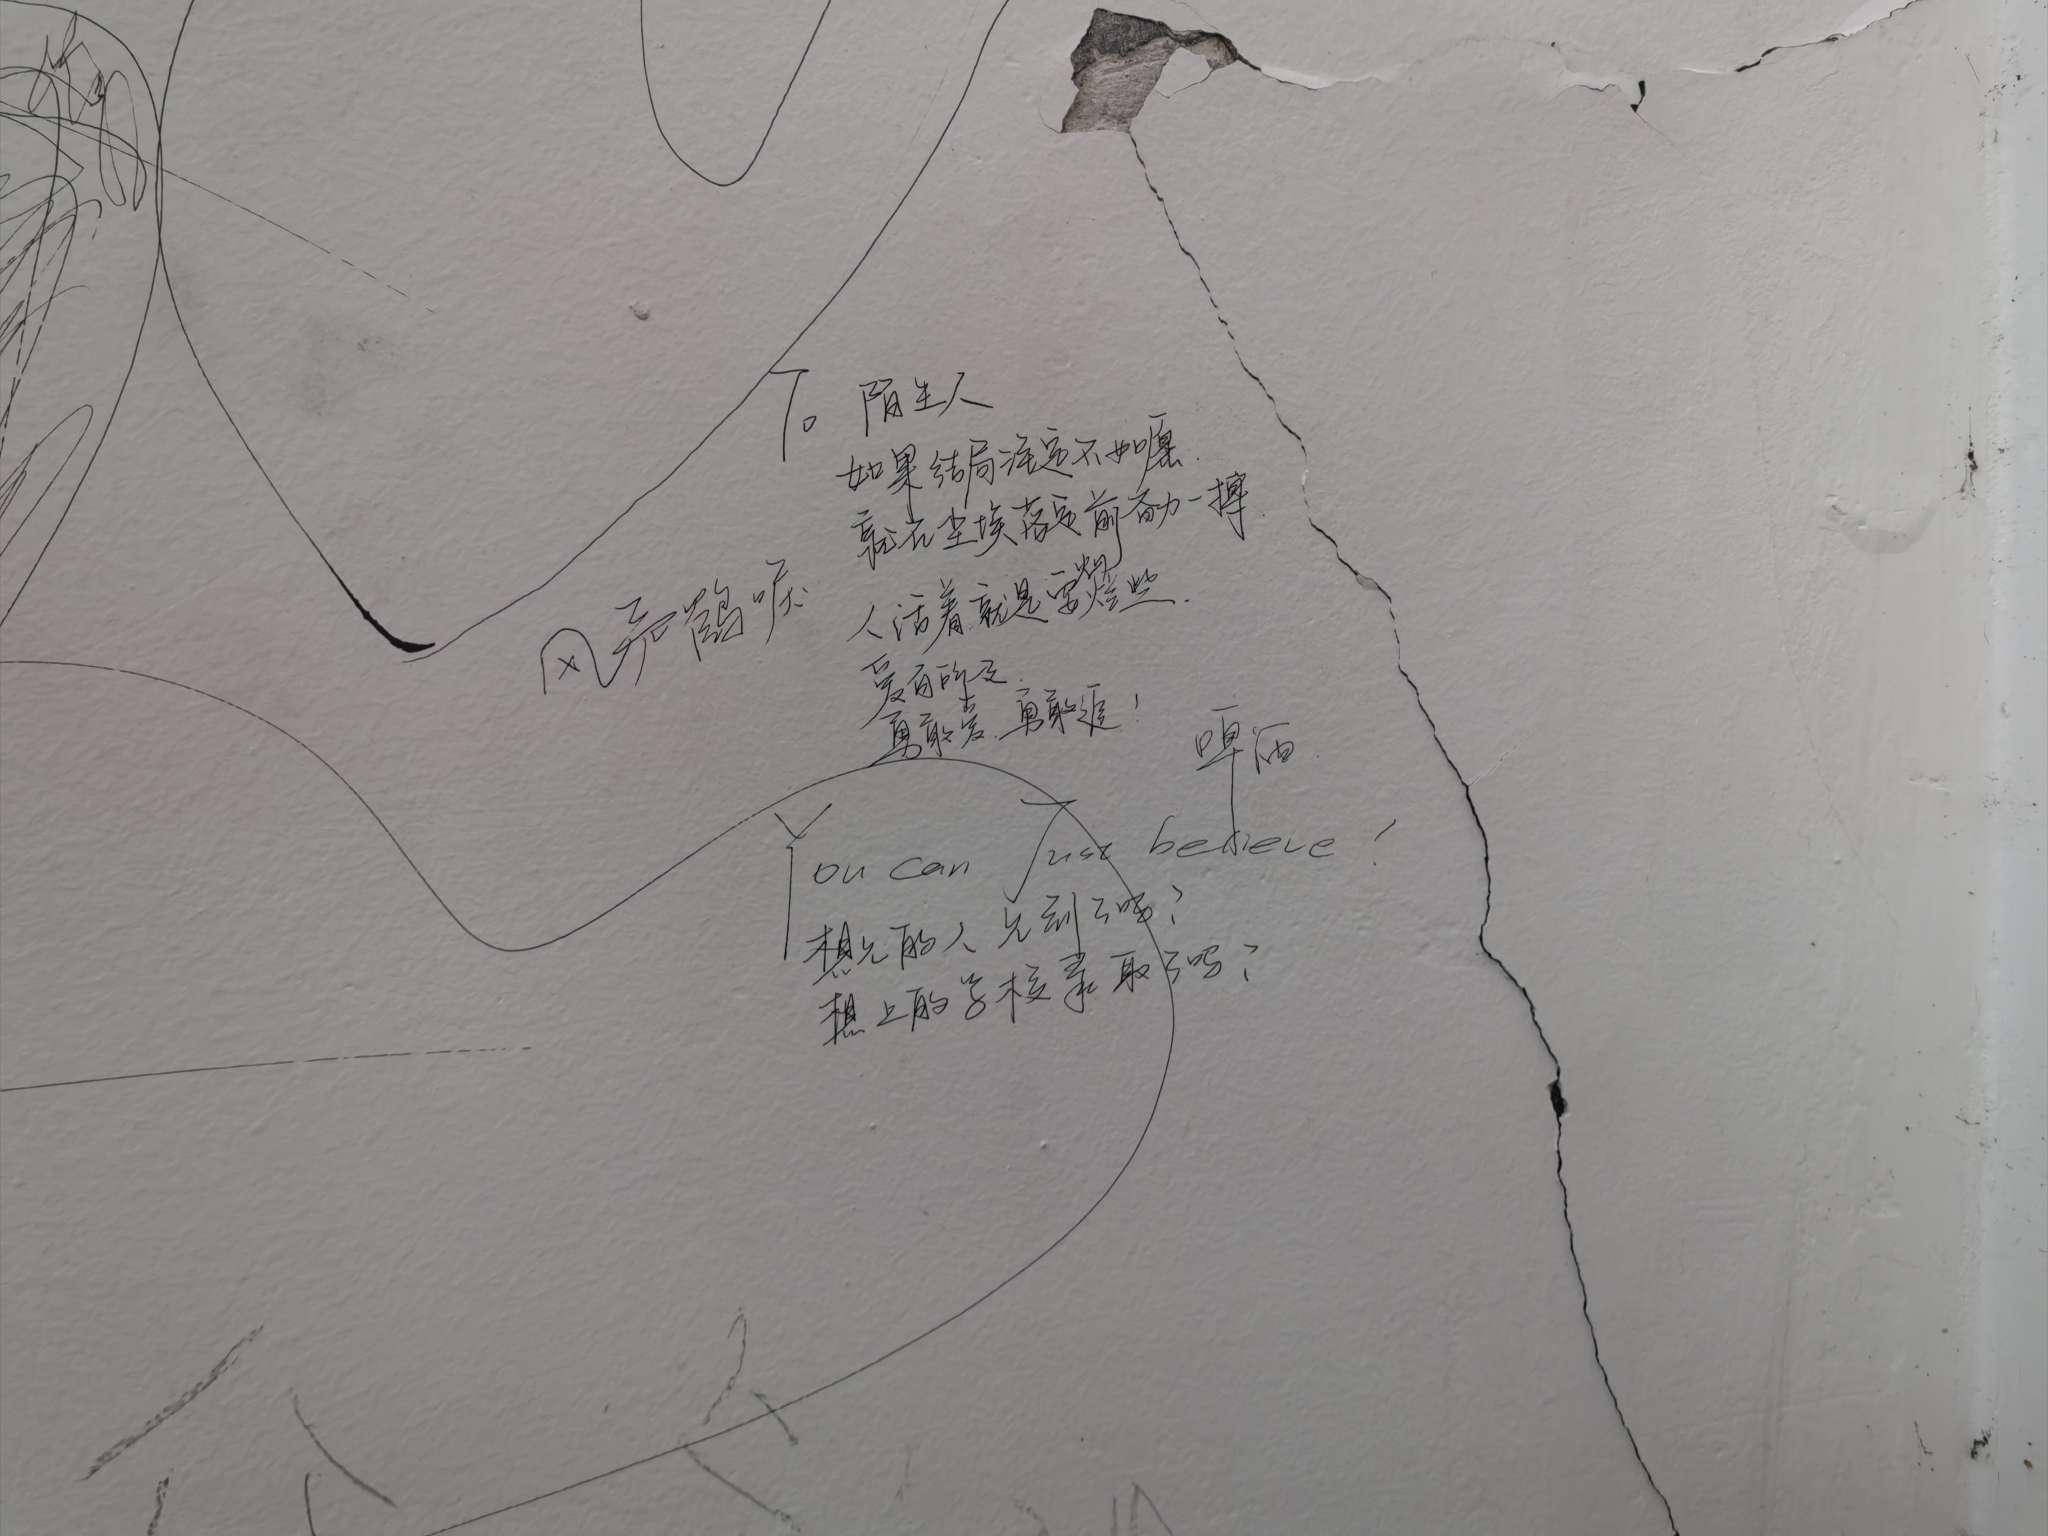 To 陌生人
如果结局注定不如愿.
就在尘埃落定前奋力一搏.
人活着就是要燃些.
爱有所
勇敢爱.勇敢追!
风声鹤唳
啤酒.
You can Just believe!
想见的人见到了吗?
想上的学校录取了吗?